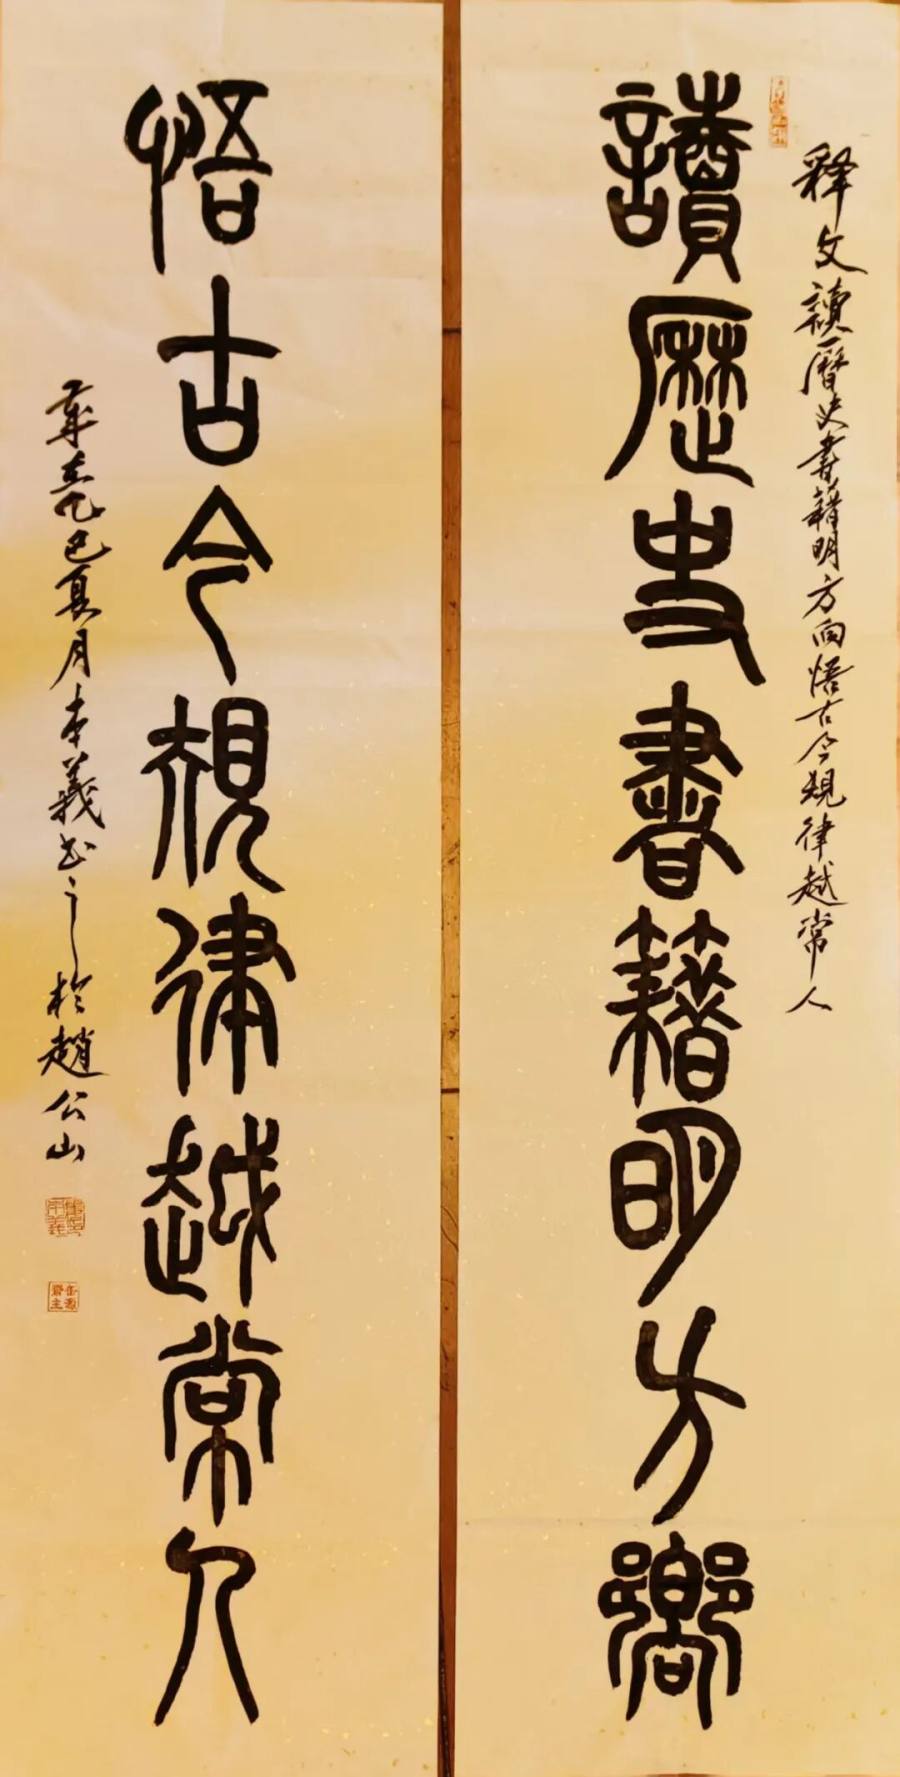 释文讀歷史書籍明方向悟古今規律越常人
讀歷史書籍明方嚮
悟古今規律越常人
乙巳夏月本義书之於趙公山